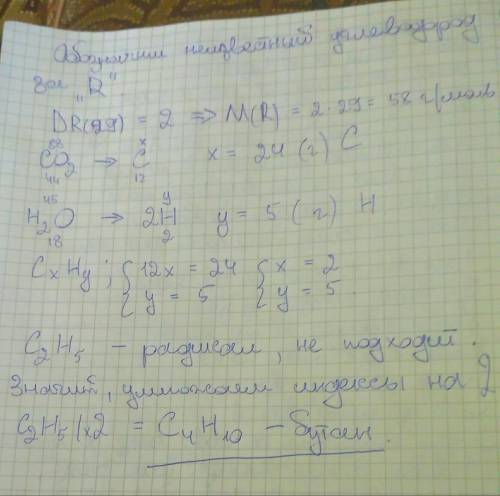 Обозначим неизвестный углеводород
за „R"
DR(29) = 2 => M(R) = 2·29 = 58 г/моль
88 x
CO₂ → C x = 24 (г) C
44 12
45 y
H₂O → 2H y = 5 (г) H
18 2
CxHy ; { 12x = 24 { x = 2
{ y = 5 { y = 5.
C₂H₅ – радикал, не подходит.
Значит, умножаем индексы на 2
C₂H₅ |x2 = C₄H₁₀ – бутан.